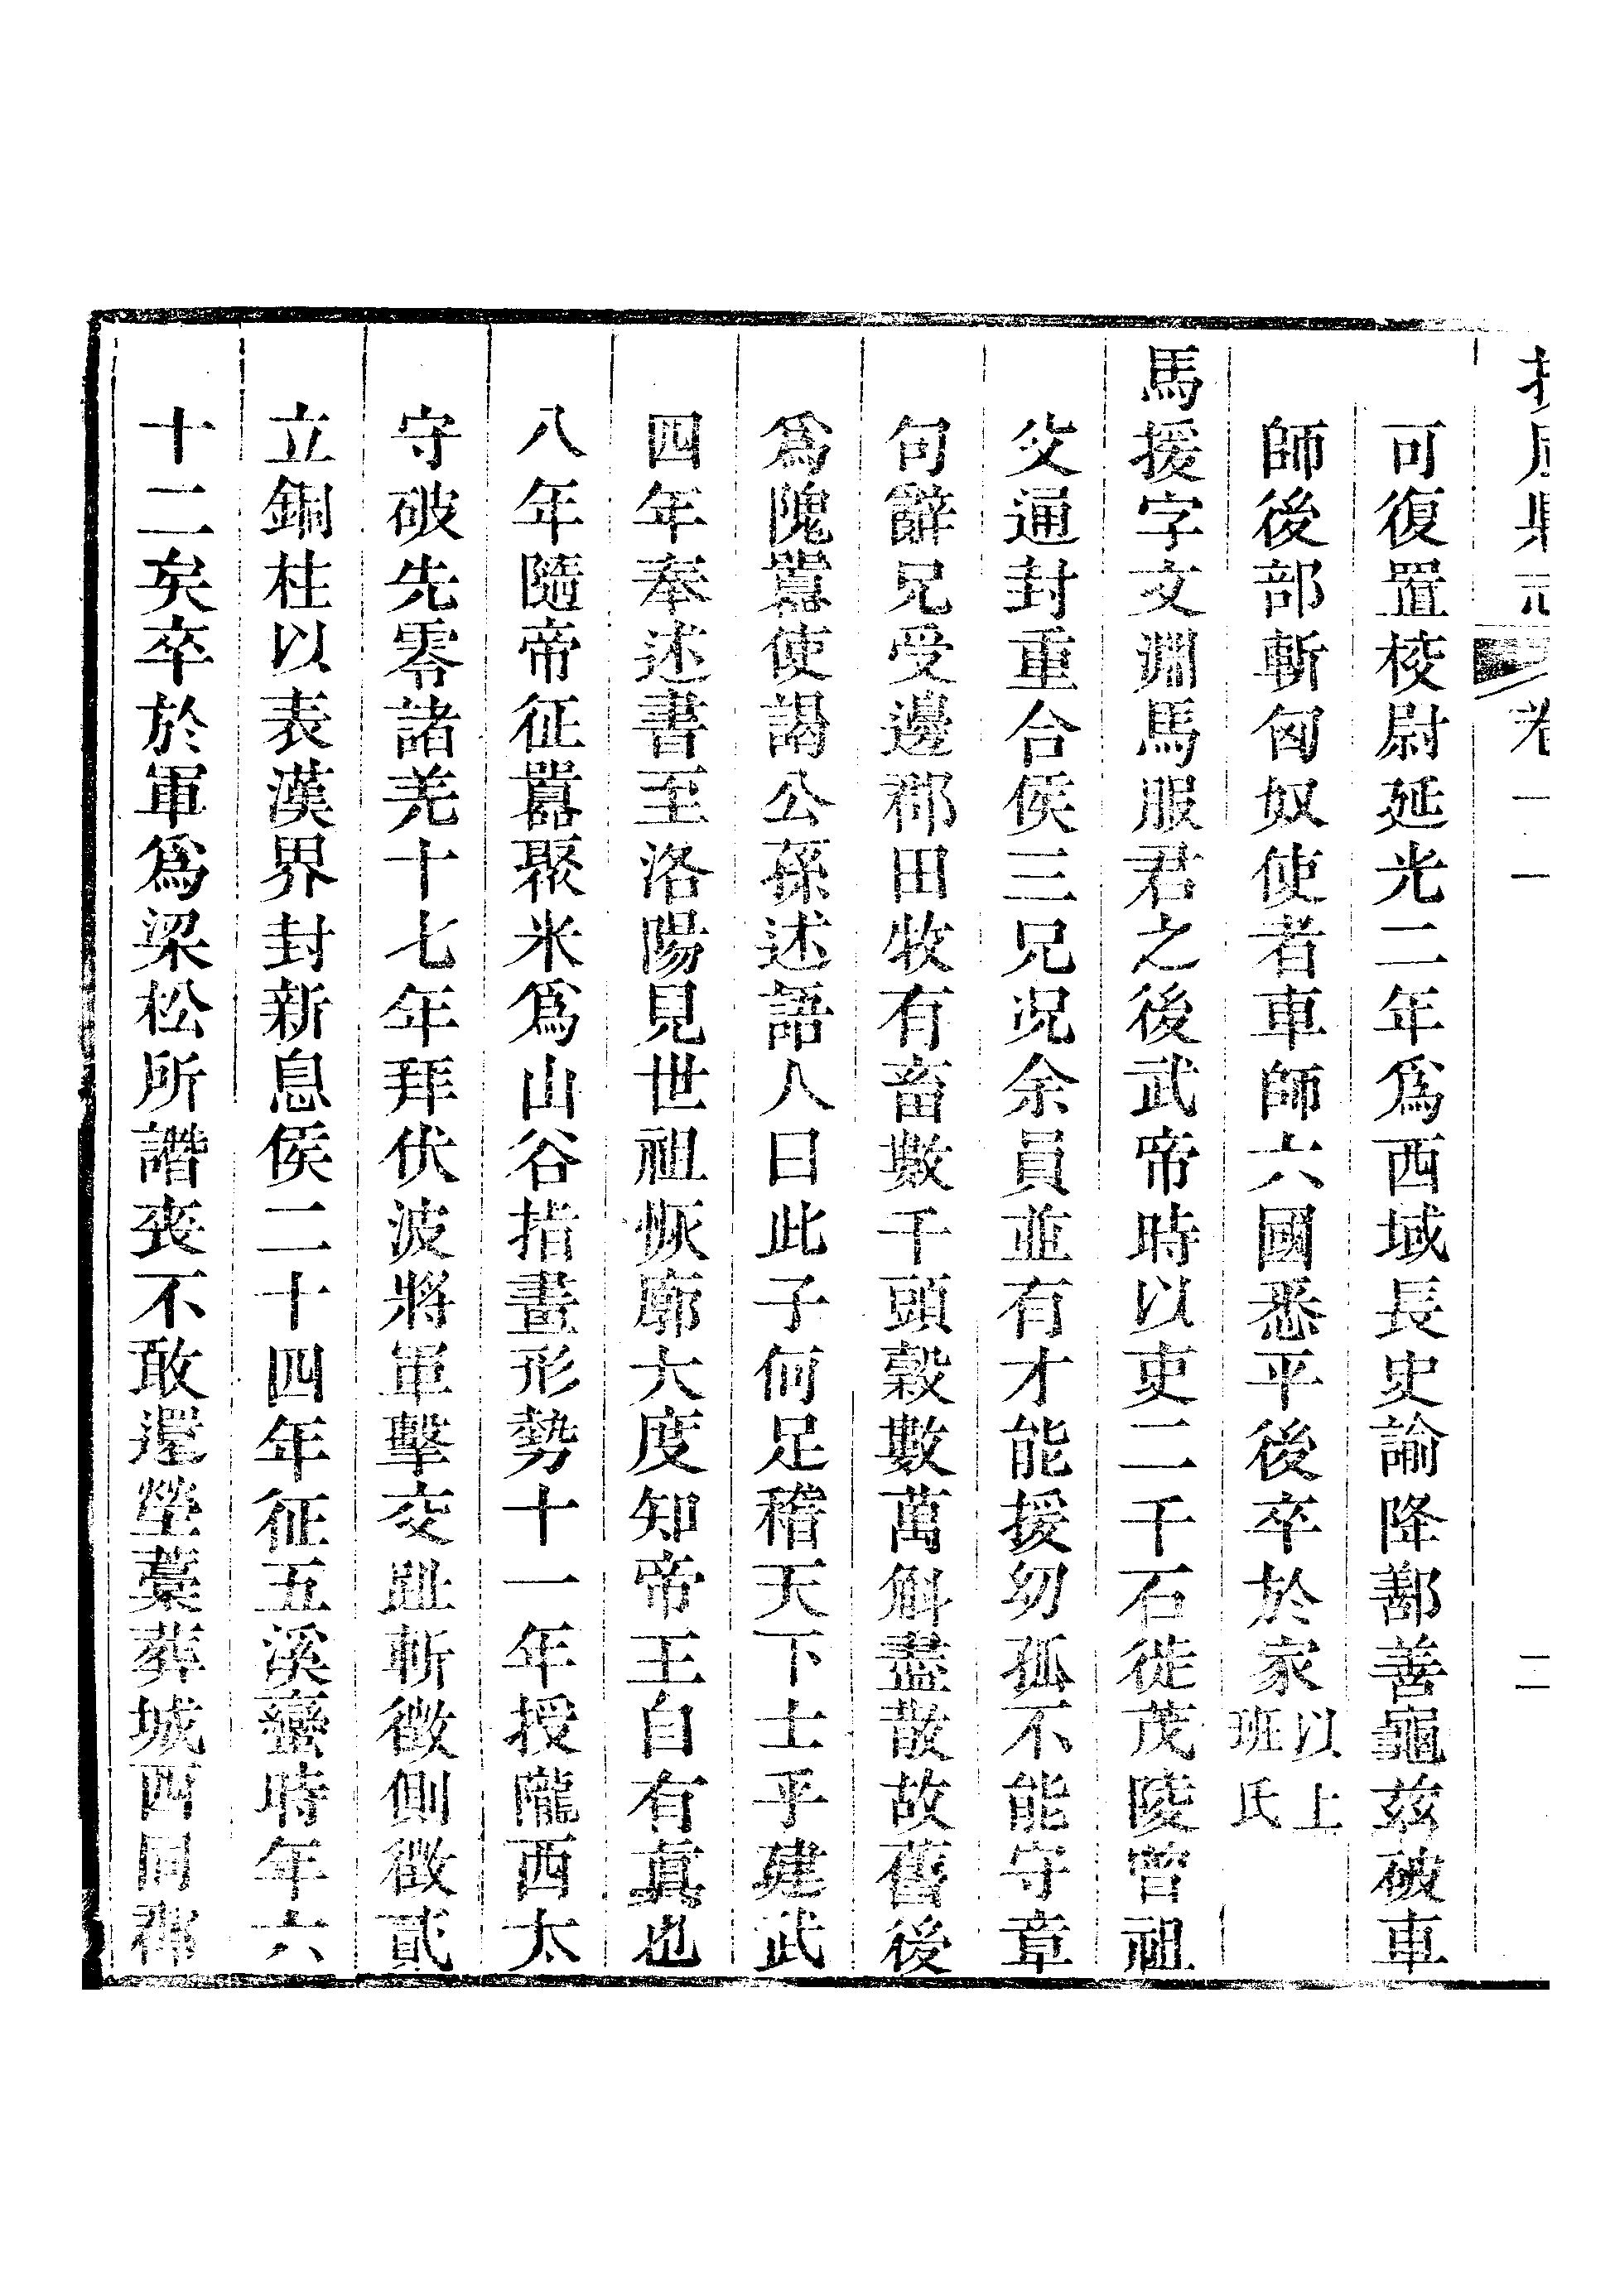 卷十一
二
可復置校尉延光二年爲西域長史諭降鄯善龜茲破車
師後部斬匈奴使者車師六國悉平後卒於家以上班氏
馬援字文淵馬服君之後武帝時以吏二千石徙茂陵曾祖
父通封重合侯三兄況余員並有才能援幼孤不能守章
句辭兄受邊郡田牧有畜數千頭穀數萬斛盡散故舊後
爲隗囂使謁公孫述語人曰此子何足稽天下士乎建武
四年奉述書至洛陽見世祖恢廓大度知帝王自有眞也
八年隨帝征囂聚米爲山谷指畫形勢十一年授隴西太
守破先零諸羌十七年拜伏波將軍擊交趾斬徵側徵貳
立銅柱以表漢界封新息侯二十四年征五溪蠻時年六
十二矣卒於軍爲梁松所譖喪不敢還塋藁葬城西同郡